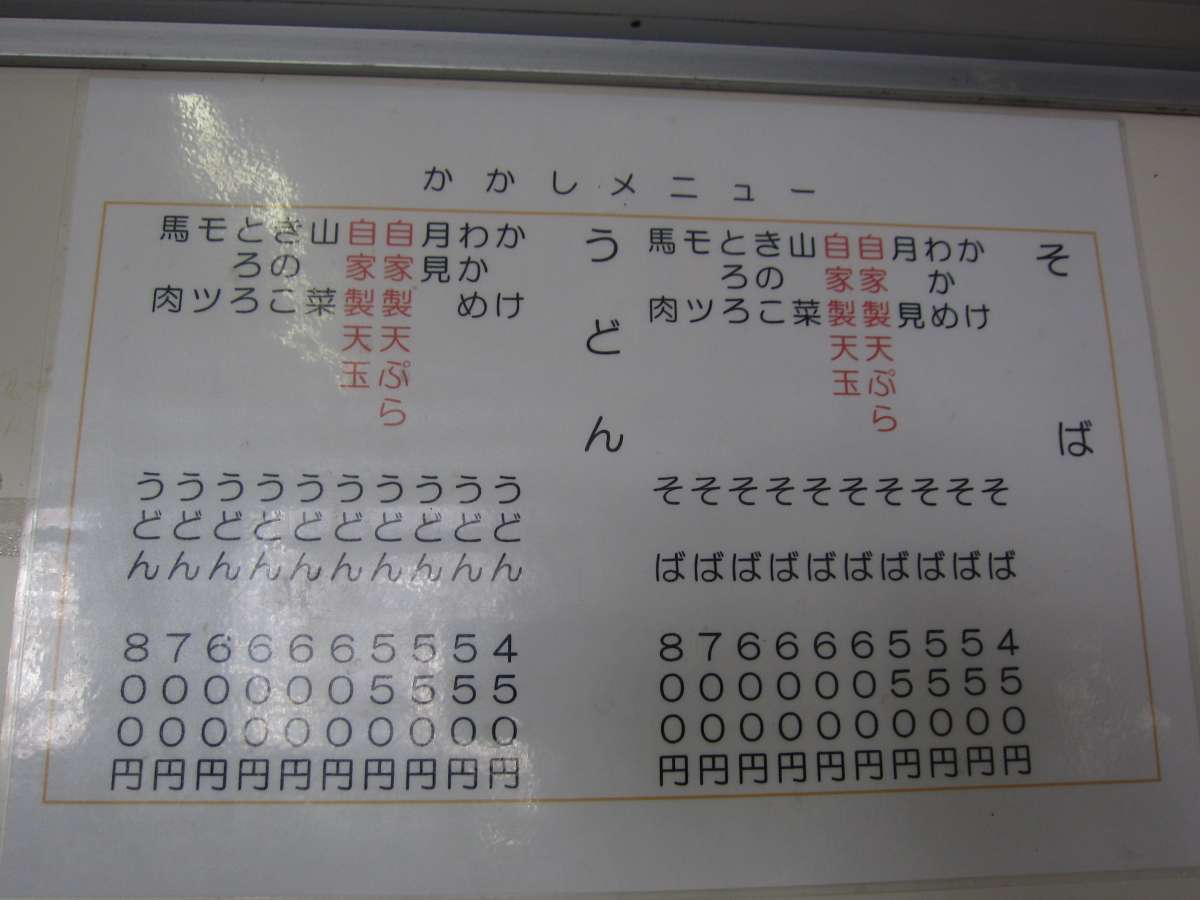 かかしメニュー
そば
かけそば450円
わかめそば550円
月見そば550円
自家製天ぷらそば550円
自家製天玉そば600円
山菜そば600円
きのこそば600円
とろろそば600円
モツそば700円
馬肉そば800円
うどん
かけうどん450円
わかめうどん550円
月見うどん550円
自家製天ぷらうどん550円
自家製天玉うどん600円
山菜うどん600円
きのこうどん600円
とろろうどん600円
モツうどん700円
馬肉うどん800円